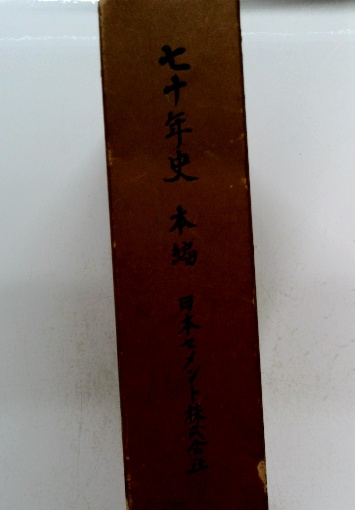 七十年史 本編 日本セメント株式会社